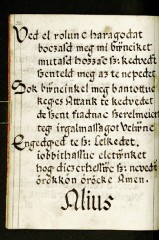 Ved el rolunc haragodat
boczasd meg mi bẃneiket
mutasd hozzac sz: kedvedt
szenteld meg az te nepedet.
Sok bẃneinkel meg bantottuc
keges Attank te kedvedet
de szent fiadnac szerelmeiert
tegi irgalmassagot velẃnc
Engedged te sz: Lelkedet,
iobbithassuc eletẃnket
hog diczerhessẃc sz: nevedet
örökkön öröcke Amen.
Alius